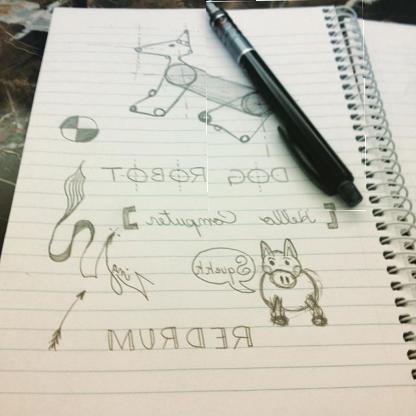 DOG ROBOT
[Hello Computer]
REDRUM